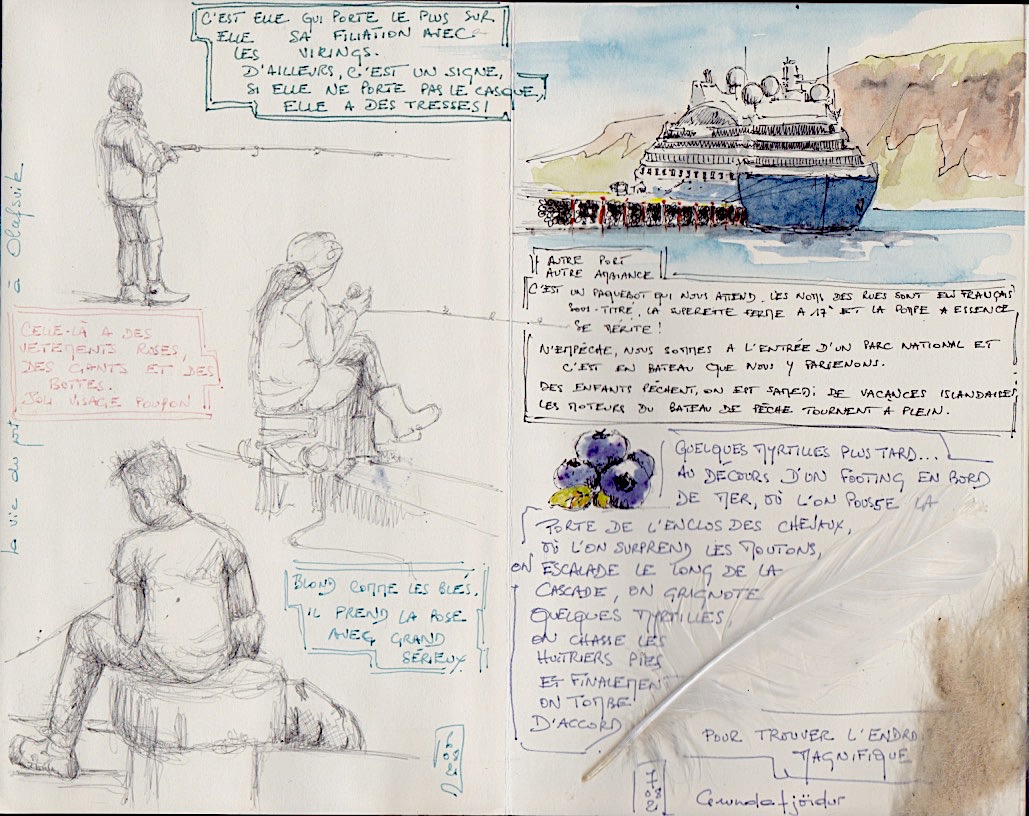 C'EST ELLE QUI PORTE LE PLUS SUR
ELLE SA FILIATION AVEC
LES VIKINGS.
D'AILLEURS, C'EST UN SIGNE,
SI ELLE NE PORTE PAS LE CASQUE,
ELLE A DES TRESSES!
la vie du port à Olafsvik
CELLE-LÀ A DES
VETEMENTS ROSES,
DES GANTS ET DES
BOTTES.
JOLI VISAGE POUPON
BLOND COMME LES BLÉS,
IL PREND LA POSE
AVEC GRAND
SÉRIEUX
08
21
AUTRE PORT
AUTRE AMBIANCE
C'EST UN PAQUEBOT QUI NOUS ATTEND. LES NOMS DES RUES SONT EN FRANÇAIS
SOUS-TITRÉ, LA SUPERETTE FERME A 17h ET LA POMPE A ESSENCE
SE MÉRITE!
N'EMPÊCHE, NOUS SOMMES A L'ENTRÉE D'UN PARC NATIONAL ET
C'EST EN BATEAU QUE NOUS Y PARVENONS.
DES ENFANTS PÊCHENT, ON EST SAMEDI DE VACANCES ISLANDAISES
LES MOTEURS DU BATEAU DE PÊCHE TOURNENT À PLEIN.
QUELQUES MYRTILLES PLUS TARD...
AU DÉCOURS D'UN FOOTING EN BORD
DE MER, OÙ L'ON POUSSE LA
PORTE DE L'ENCLOS DES CHEVAUX,
OÙ L'ON SURPREND LES MOUTONS,
ON ESCALADE LE LONG DE LA
CASCADE, ON GRIGNOTE
QUELQUES MYRTILLES,
ON CHASSE LES
HUITRIERS PIES
ET FINALEMENT
ON TOMBE
D'ACCORD
POUR TROUVER L'ENDROI
MAGNIFIQUE
7
08
21
Grundafjöidur